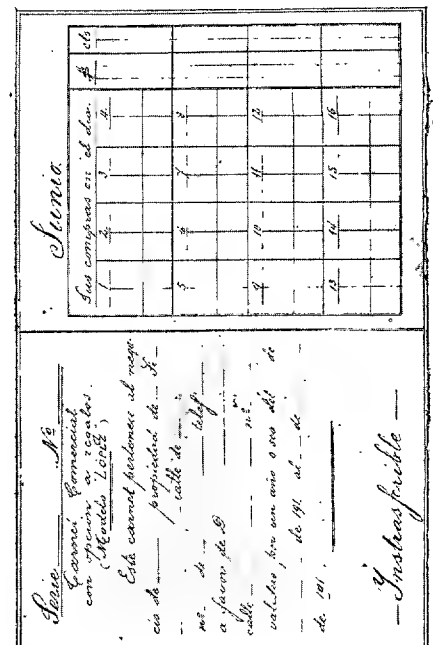 Serie Nº
Carnet Comercial
con opcion a regalos.
(Modelo LOPEZ)
Este carnet pertenece al nego-
cio de — propiedad de
— calle de —
nº — de — telef:
a favor de D
calle — nº —
valedero por un año o sea del de
— de 191 al — de —
de 191
— Instrasferible —
Junio.
Sus compras en el dia. $ cts
1 2 3 4
5 6 7 8
9 10 11 12
13 14 15 16